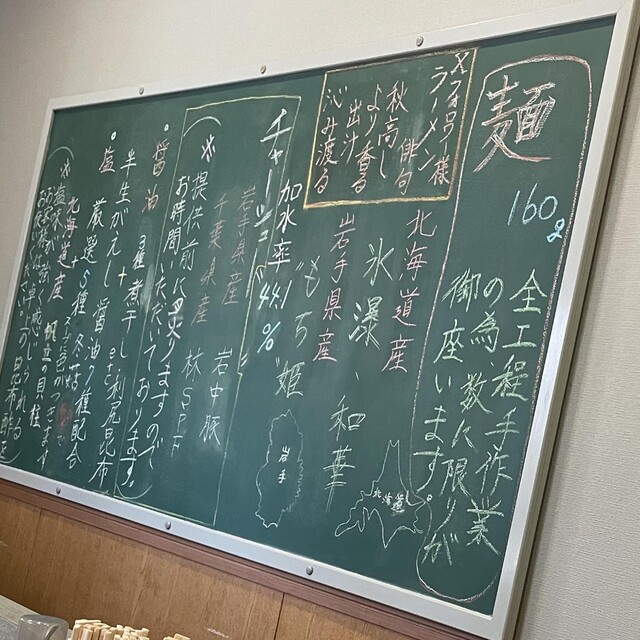 麺
160g
全工程手作業
の為、数に限りが
御座います。
Xフォロワー様
ラーメン
俳句
秋高し
より香る
出汁
沁み渡る
北海道産
氷瀑、和華
岩手県産
"もち姫"
加水率 44.1%
北海道
岩手
チャーシュー
岩手県産 岩中豚
千葉県産 林SPF
(※提供前に炙りますので
お時間いただいております。)
醤油
3種煮干し etc 利尻昆布
半生がえし 醤油7種配合
塩
厳選5種冬菇
北海道産 帆立の貝柱